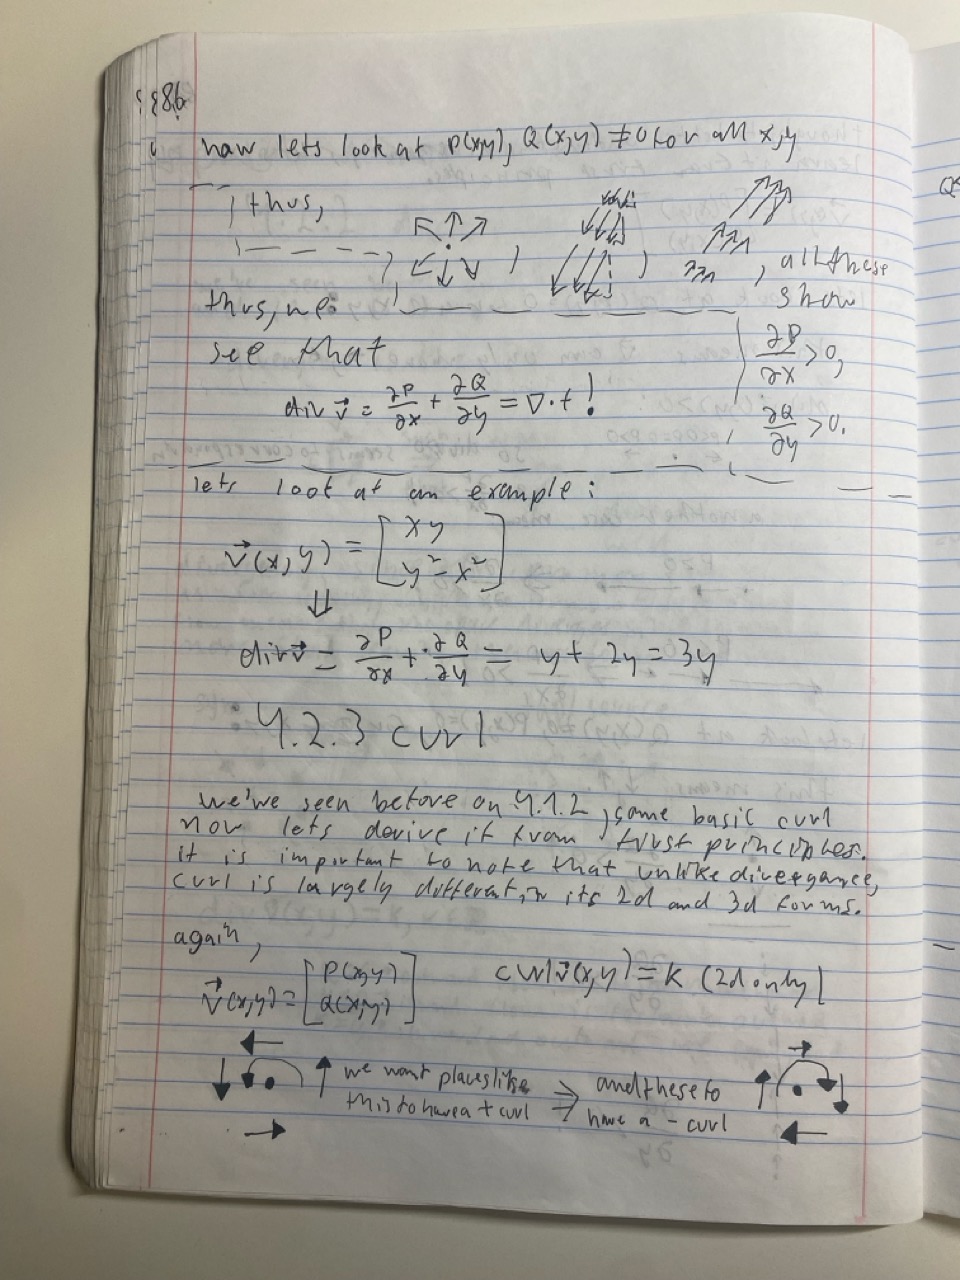 86
now lets look at P(x,y), Q(x,y) ≠ 0 for all x,y
thus,
, all these
show
thus, we
see that
∂P/∂x > 0,
div v⃗ = ∂P/∂x + ∂Q/∂y = ∇·f !
∂Q/∂y > 0.
lets look at an example:
v⃗(x,y) = [xy
y² - x²]
⇓
div v⃗ = ∂P/∂x + ∂Q/∂y = y + 2y = 3y
4.2.3 curl
we've seen before on 4.1.2, some basic curl
now lets derive it from first principles.
it is important to note that unlike divergance,
curl is largely different, in its 2d and 3d forms.
again,
v⃗(x,y) = [P(x,y)
Q(x,y)]
curl v⃗(x,y) = k (2d only)
we want places like
this to have a + curl
⇒ and these to
have a - curl